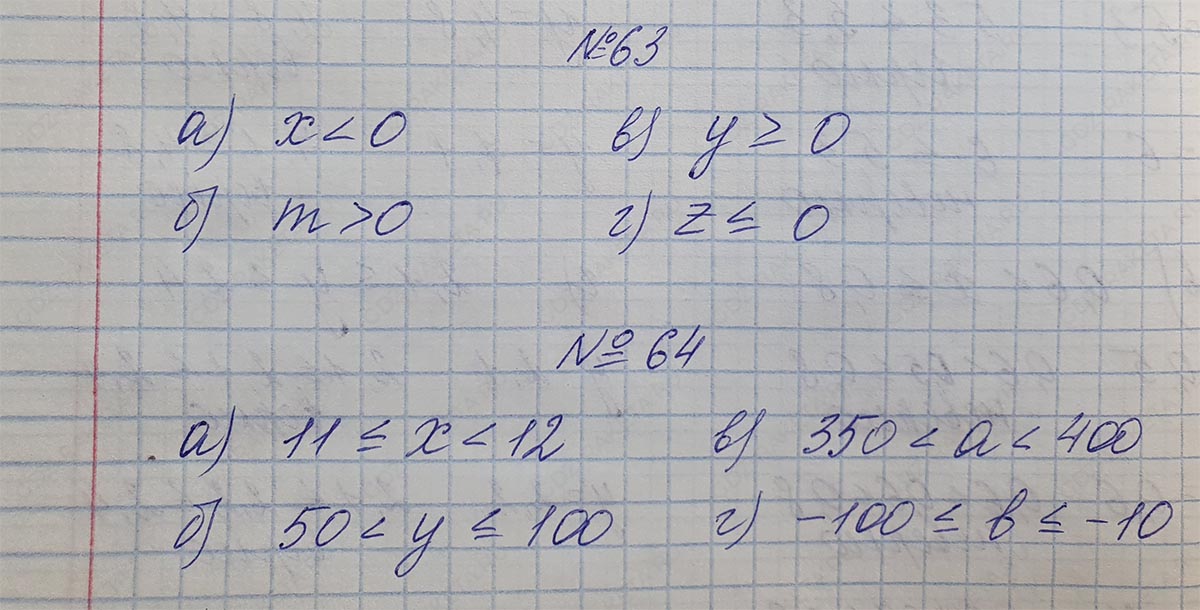 №63
а) x < 0 в) y ≥ 0
б) m > 0 г) z ≤ 0
№ 64
а) 11 ≤ x < 12 в) 350 < a < 400
б) 50 < y ≤ 100 г) -100 ≤ b ≤ -10